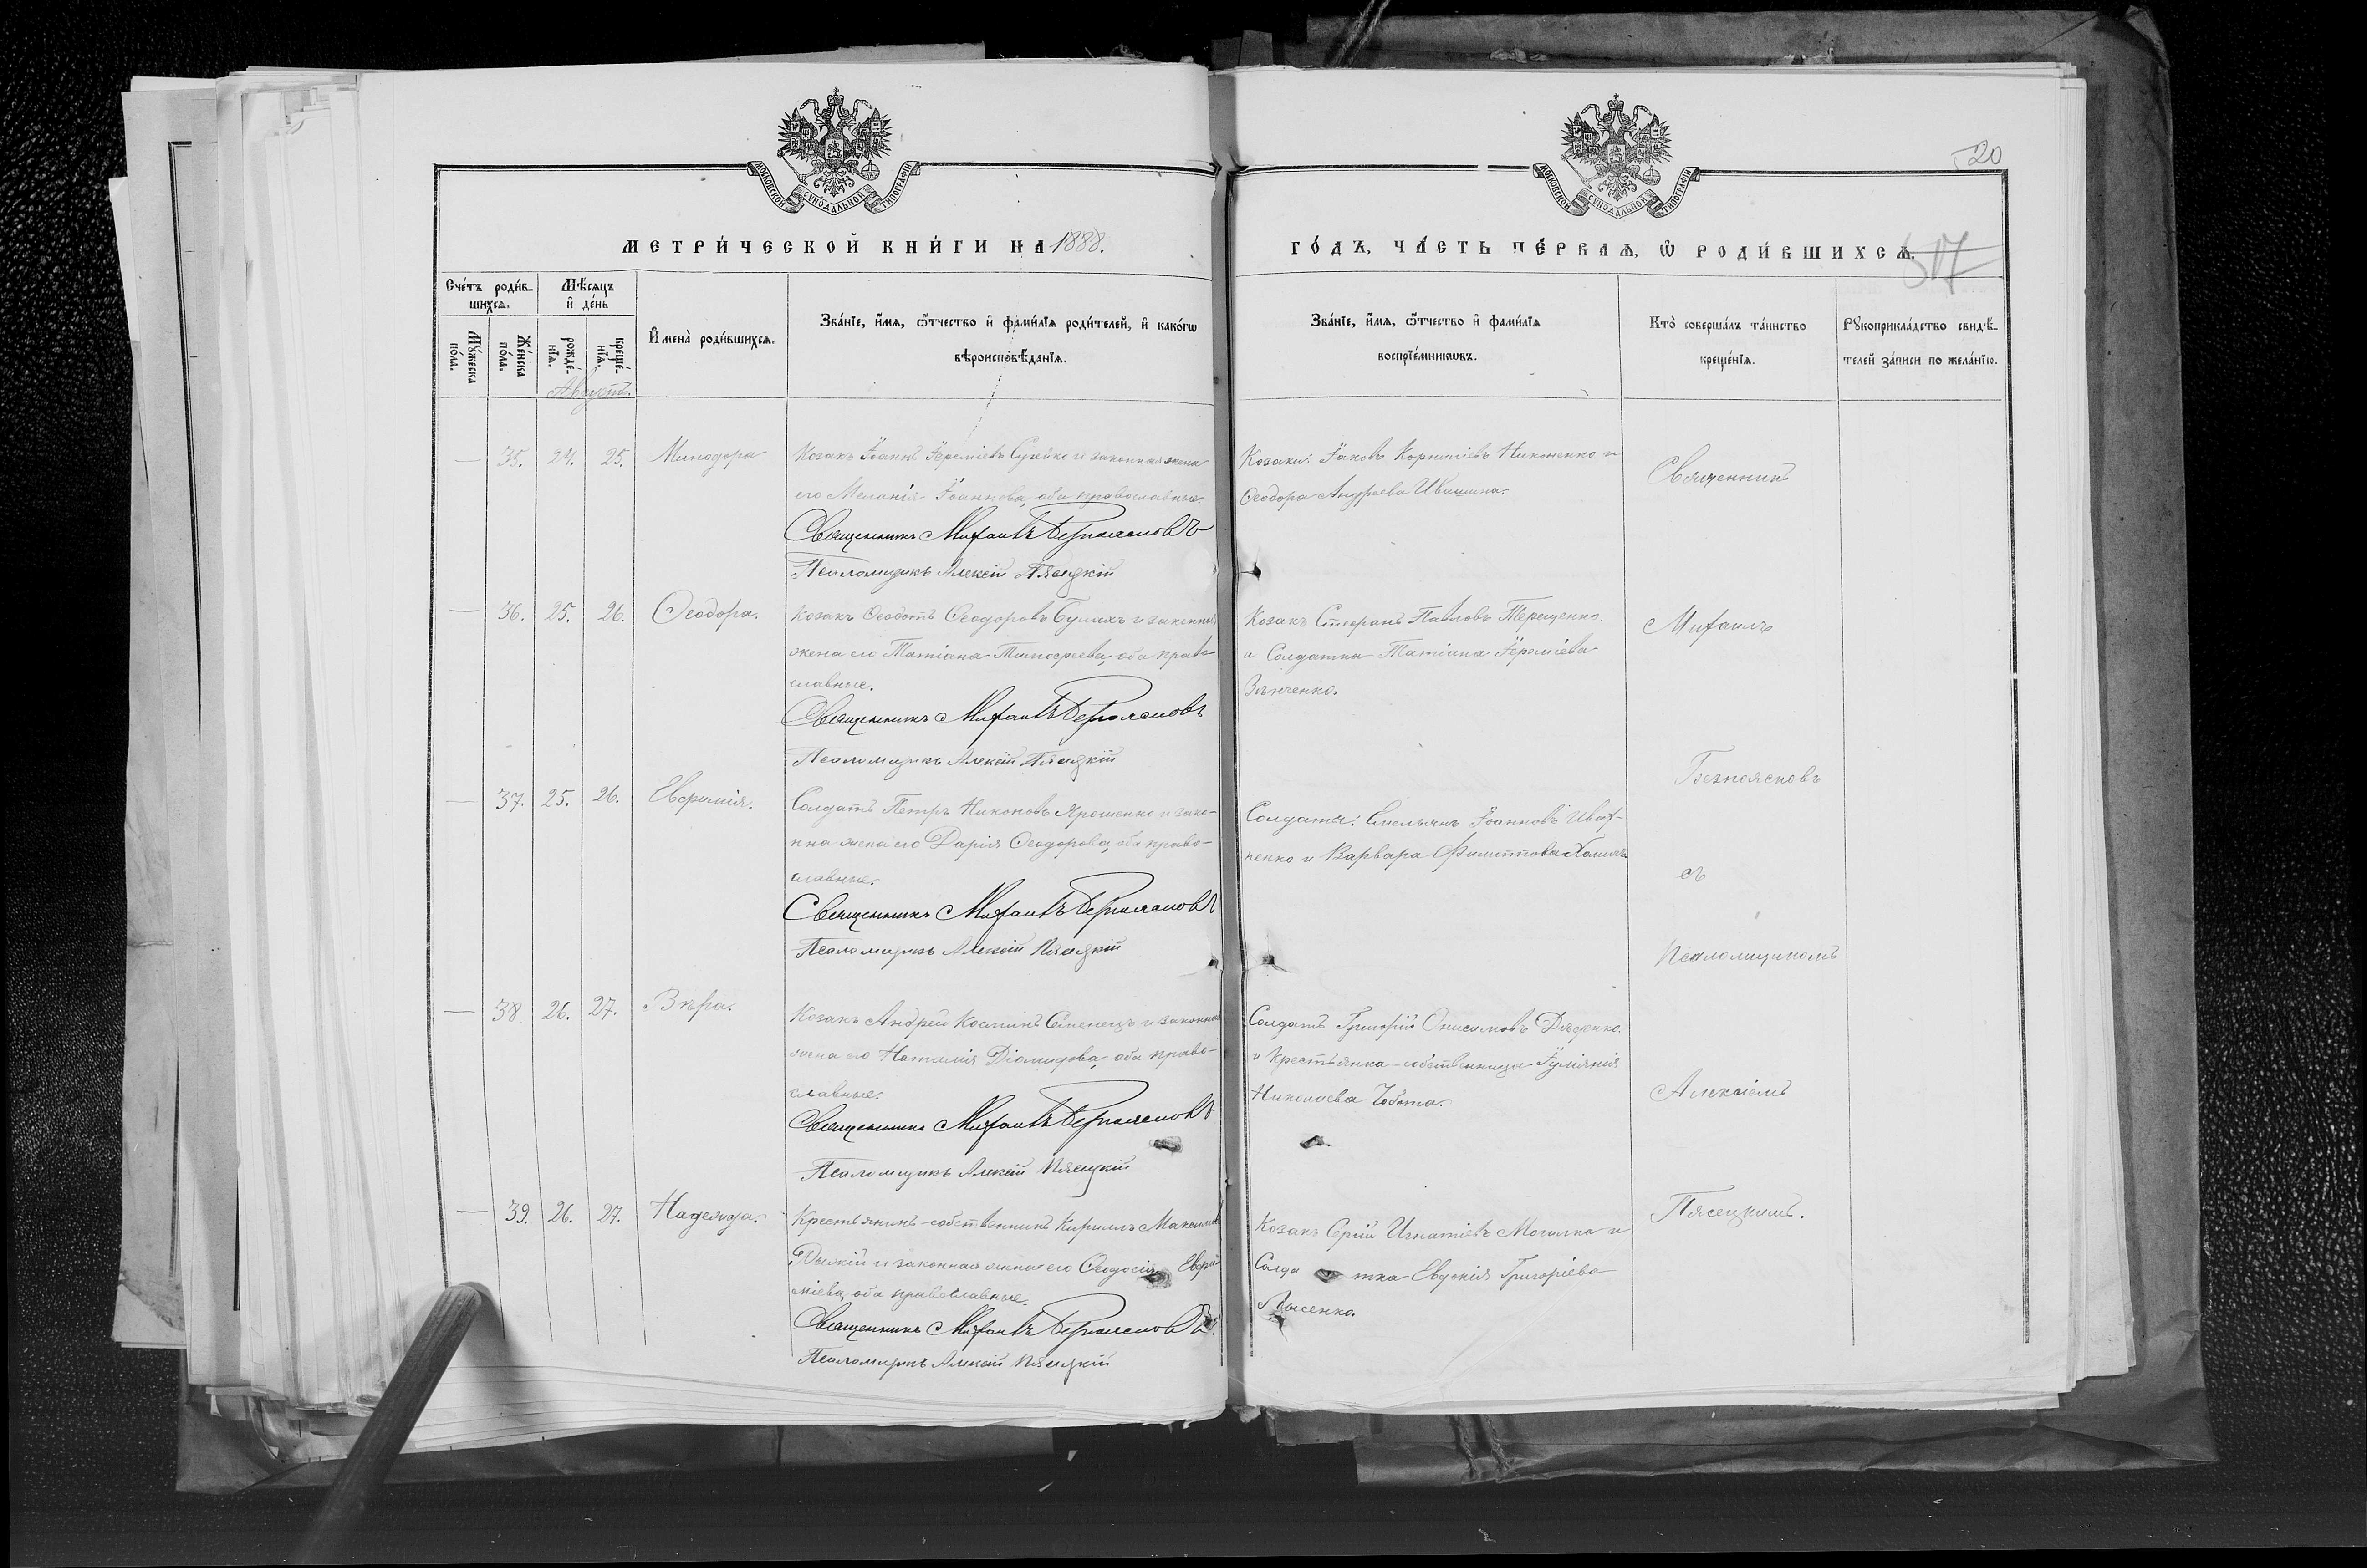 20
МОСКОВСКОЙ СѴНОДАЛЬНОЙ ТИПОГРАФІИ
МОСКОВСКОЙ СѴНОДАЛЬНОЙ ТИПОГРАФІИ
МЕТРИ́ЧЕСКОЙ КНИ́ГИ НА 1888.
ГО́ДЪ, ЧА́СТЬ ПЕ́РВАѦ, Ѡ҆ РОДИ́ВШИХСѦ.
517
Сче́тъ роди́в-
шихсѧ.
Мꙋ́жеска по́ла.
Же́нска по́ла.
Мѣ́сяцъ
и҆ де́нь
рожде́-
нїѧ.
креще́-
нїѧ.
Августъ.
И҆мена̀ роди́вшихсѧ.
Зва́нїе, и҆́мѧ, ѻ҆́тчество и҆ фами́лїѧ роди́телей, и҆ како́гѡ
вѣроисповѣ́данїѧ.
Зва́нїе, и҆́мѧ, ѻ҆́тчество и҆ фами́лїѧ
воспрїе́мникѡвъ.
Кто̀ соверша́лъ та́инство
креще́нїѧ.
Рꙋкоприкла́дство свидѣ́-
телей за́писи по жела́нїю.
— 35. 24. 25. Минодора
Козакъ Іоаннъ Іереміевъ и законная жена
его Меланія Іоаннова, оба православные.
Священникъ Михаилъ Безпоясновъ
Псаломщикъ Алексій Пясецкій
Козаки: Іаковъ Корниліевъ Никоненко и
Ѳеодора Андреева Ивашина.
— 36. 25. 26. Ѳеодора.
Козакъ Ѳеодотъ Ѳеодоровъ и законная
жена его Татіана Тимоѳеева, оба право-
славные.
Священникъ Михаилъ Безпоясновъ
Псаломщикъ Алексій Пясецкій
Козакъ Стефанъ Павловъ Терещенко
и Солдатка Татіана Іереміева
Зѣнченко.
— 37. 25. 26. Евфимія.
Солдатъ Петръ Никоновъ Ярошенко и зако-
нна жена его Дарія Ѳеодорова, оба право-
славные.
Священникъ Михаилъ Безпоясновъ
Псаломщикъ Алексій Пясецкій
Солдаты: Емельянъ Іоанновъ Ивах-
ненко и Варвара Филиппова
— 38. 26. 27. Вѣра.
Козакъ Андрей Косминъ Семенецъ и законная
жена его Наталія Діомидова, оба право-
славные.
Священникъ Михаилъ Безпоясновъ
Псаломщикъ Алексій Пясецкій
Солдатъ Григорій Онисимовъ
и Крестьянка-собственница Іуліанія
Николаева Чобота.
— 39. 26. 27. Надежда.
Крестьянинъ-собственникъ Кириллъ Максимовъ
и законная жена его Ѳеодосія Евфи-
міева, оба православные.
Священникъ Михаилъ Безпоясновъ
Псаломщикъ Алексій Пясецкій
Козакъ Сергій Игнатіевъ Могилка и
Солдатка Евдокія Григоріева
Лысенко.
Священникъ
Михаилъ
Безпоясновъ
съ
Псаломщикомъ
Алексіемъ
Пясецкимъ.